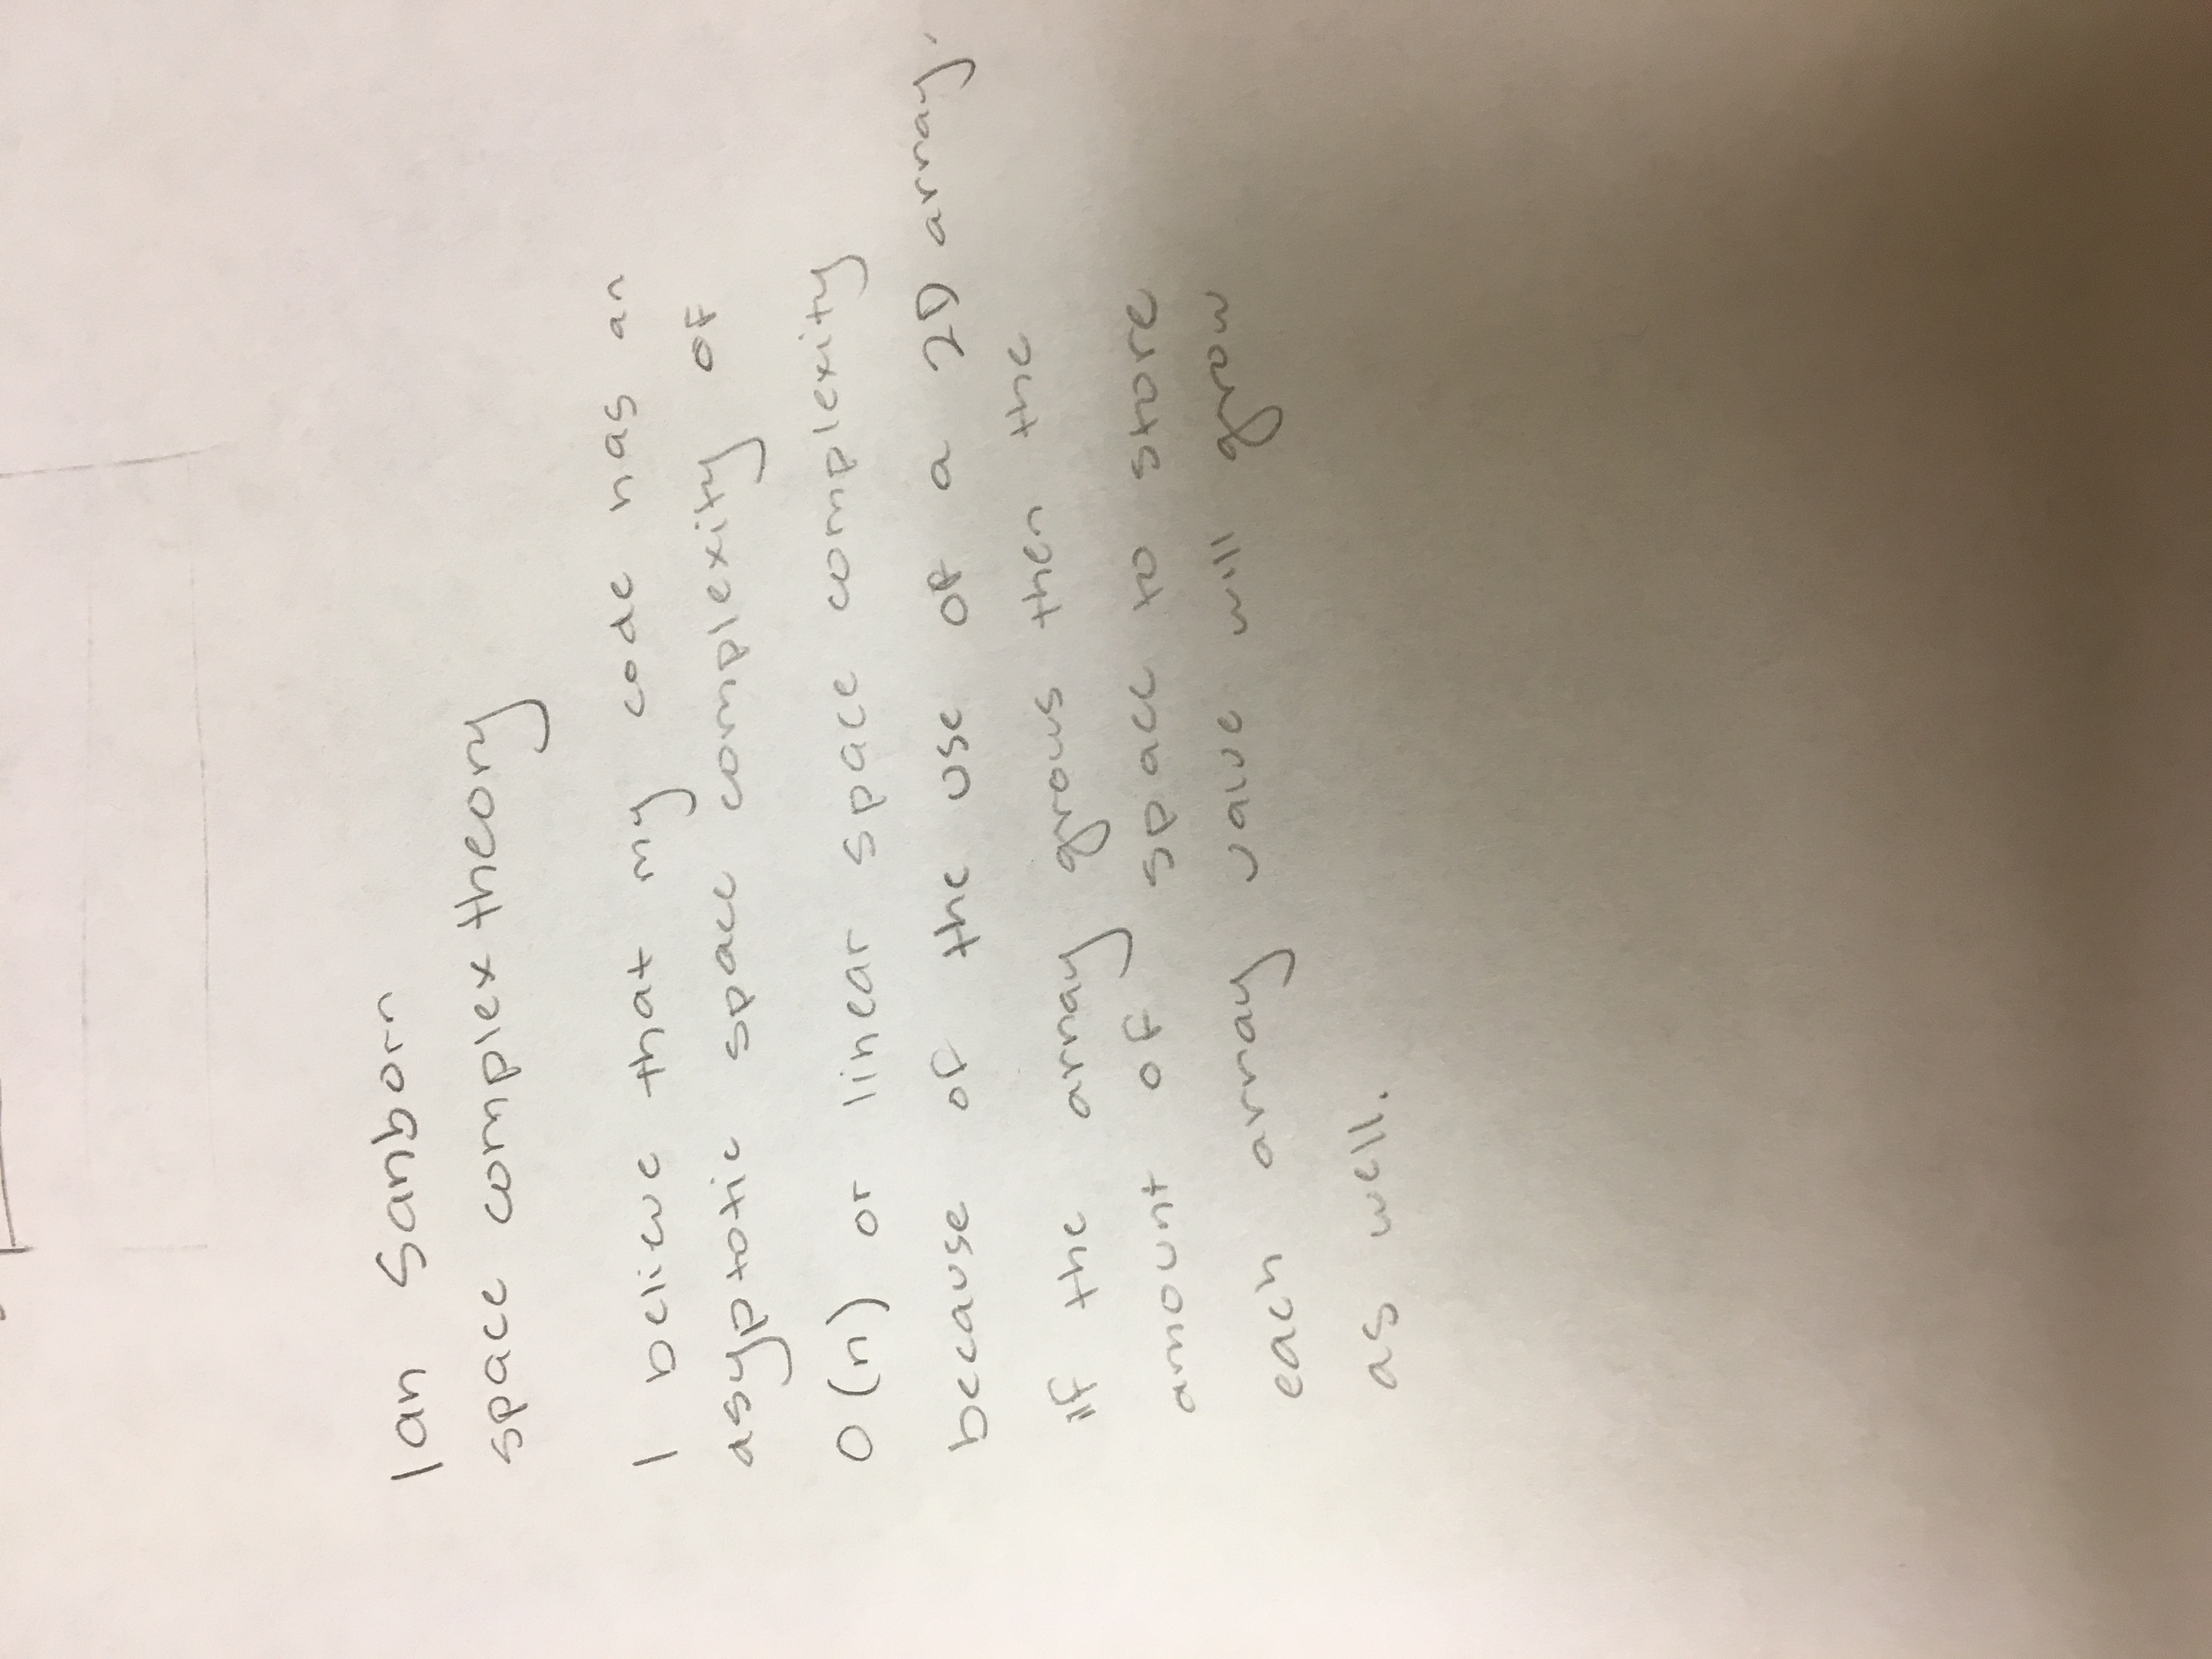 Ian Sanborn
space complex theory
I believe that my code has an
asyptotic space complexity of
O(n) or linear space complexity
because of the use of a 2D array.
if the array grows then the
amount of space to store
each array value will grow
as well.